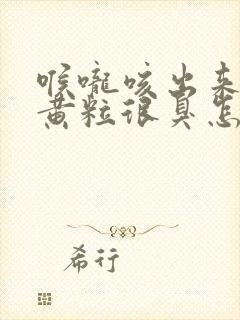 喉咙咳出来
黄粒很臭怎
希行